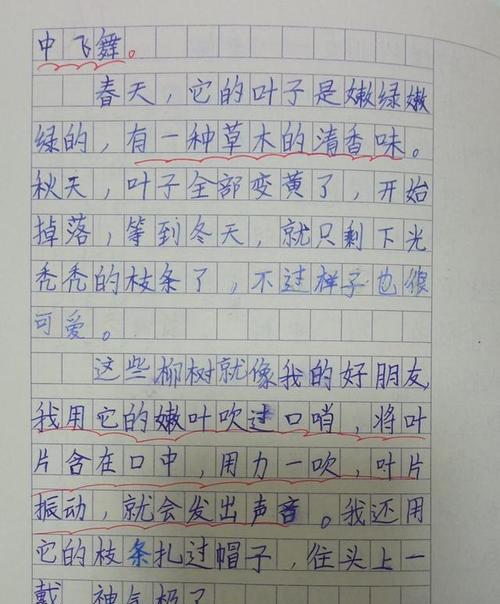 中飞舞。
春天，它的叶子是嫩绿嫩
绿的，有一种草木的清香味。
秋天，叶子全部变黄了，开始
掉落，等到冬天，就只剩下光
秃秃的枝条了，不过样子也很
可爱。
这些柳树就像我的好朋友
我用它的嫩叶吹过口哨，将叶
片含在口中，用力一吹，叶片
振动，就会发出声音。我还用
它的枝条扎过帽子，往头上一
戴，神气极了